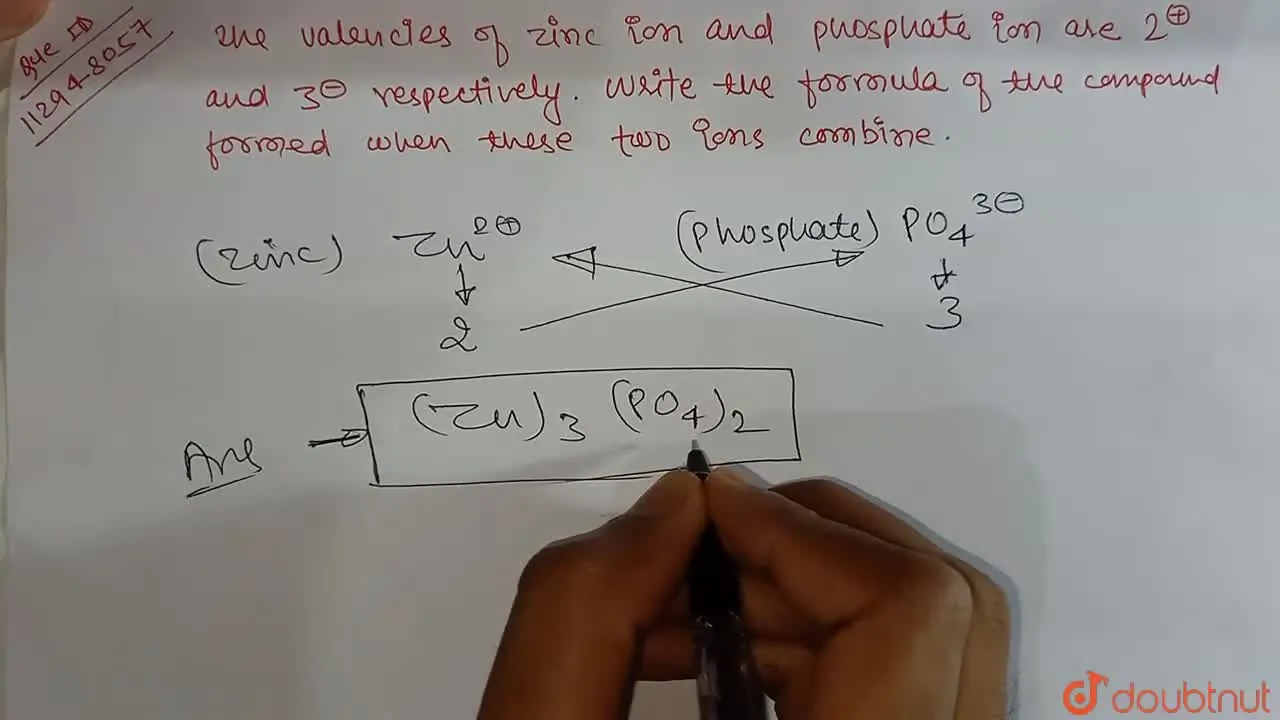 Que
11294-8057
The valencies of zinc ion and phosphate ion are 2⊕
and 3⊖ respectively. Write the formula of the compound
formed when these two ions combine.
(zinc) Zn²⊕ (phosphate) PO₄³⊖
2 3
Ans (Zn)₃ (PO₄)₂
doubtnut